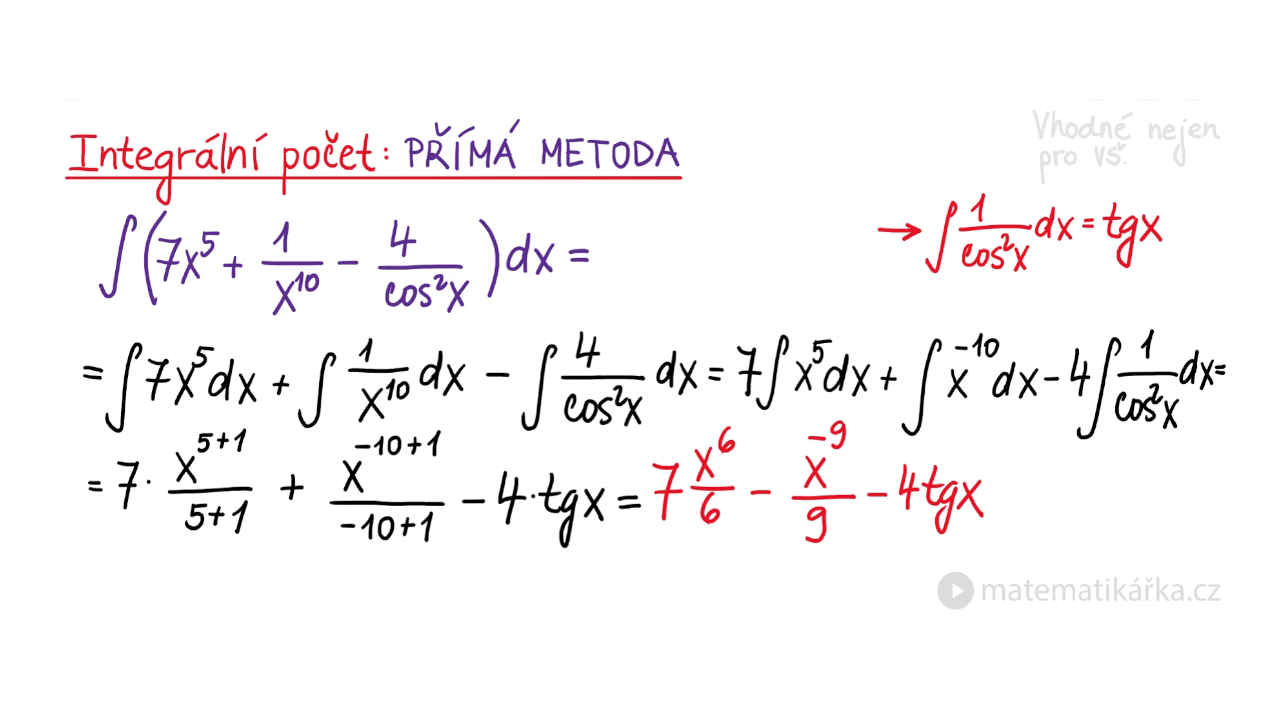 Integrální počet: PŘÍMÁ METODA
Vhodné nejen
pro VŠ.
∫(7x⁵ + 1/x¹⁰ − 4/cos²x)dx =
→ ∫ 1/cos²x dx = tgx
= ∫7x⁵dx + ∫ 1/x¹⁰ dx − ∫ 4/cos²x dx = 7∫x⁵dx + ∫x⁻¹⁰dx − 4∫ 1/cos²x dx =
= 7 · x⁵⁺¹/5+1 + x⁻¹⁰⁺¹/-10+1 − 4·tgx = 7 x⁶/6 − x⁻⁹/9 − 4tgx
matematikářka.cz